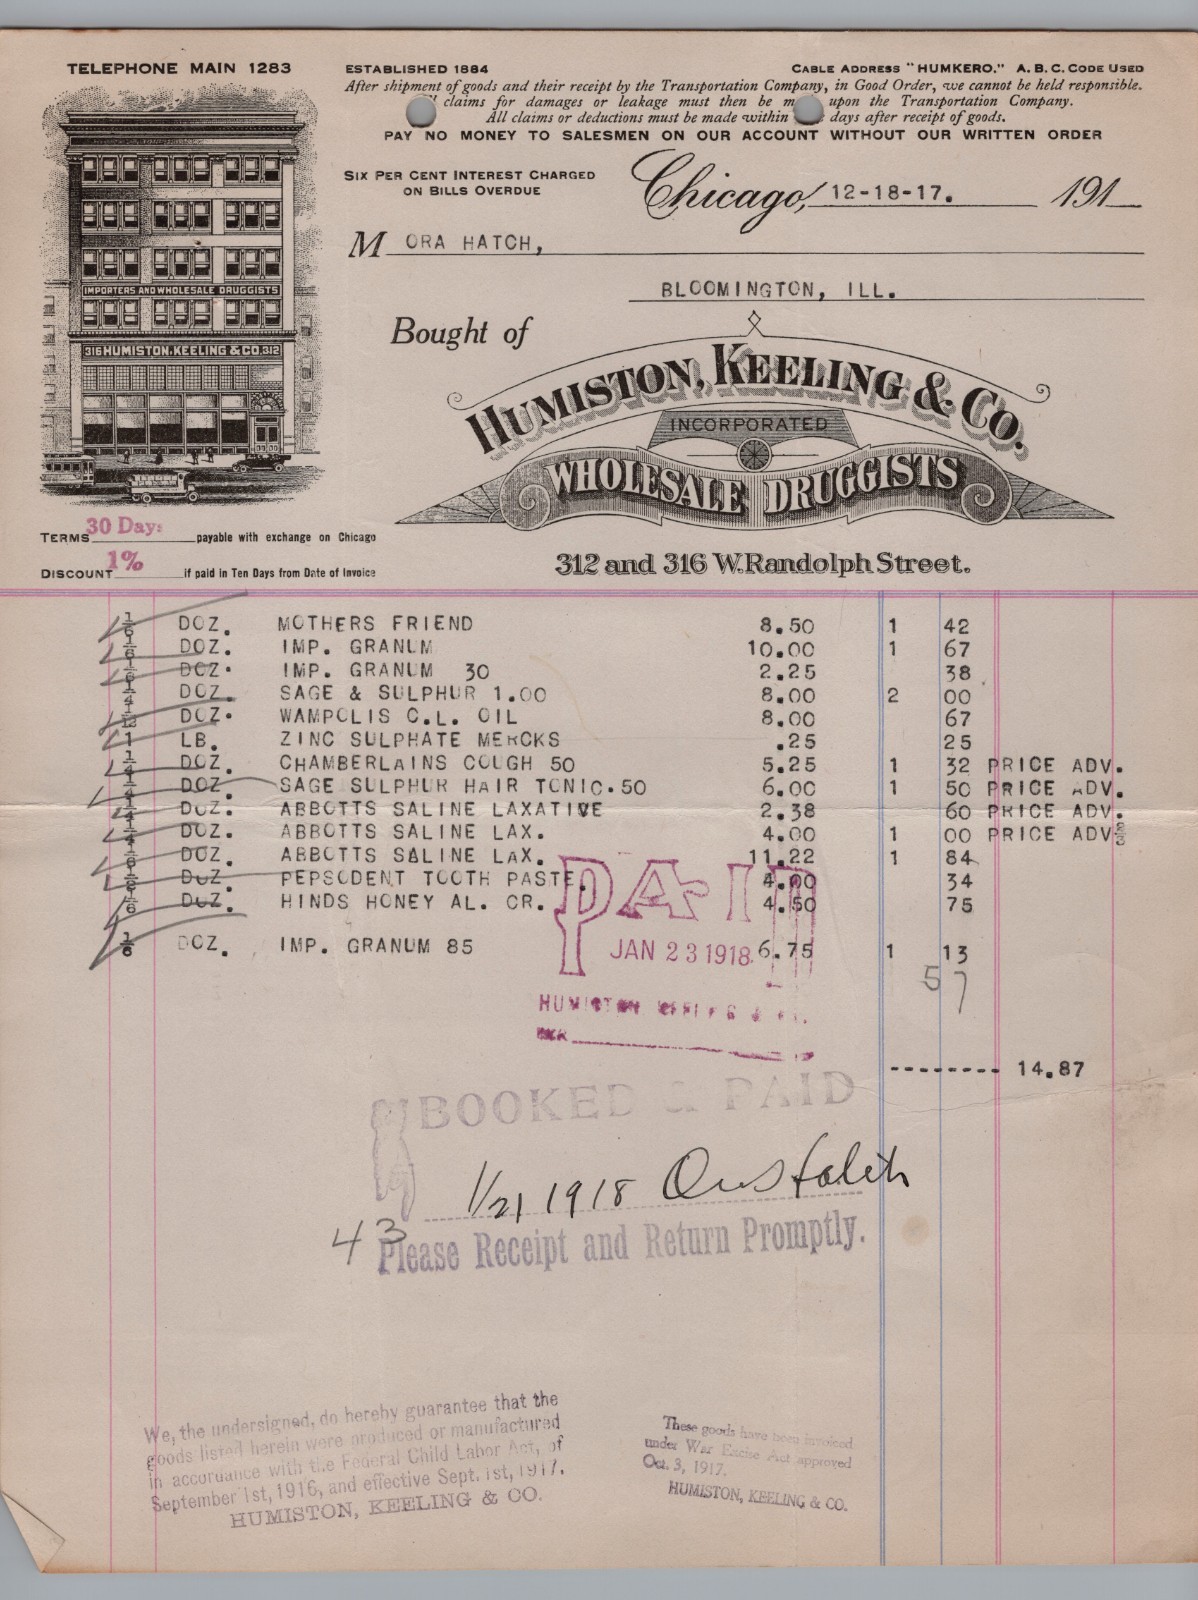 TELEPHONE MAIN 1283
ESTABLISHED 1884
CABLE ADDRESS "HUMKERO." A. B. C. CODE USED
After shipment of goods and their receipt by the Transportation Company, in Good Order, we cannot be held responsible.
claims for damages or leakage must then be m upon the Transportation Company.
All claims or deductions must be made within days after receipt of goods.
PAY NO MONEY TO SALESMEN ON OUR ACCOUNT WITHOUT OUR WRITTEN ORDER
SIX PER CENT INTEREST CHARGED
ON BILLS OVERDUE
Chicago, 12-18-17. 191
M ORA HATCH,
BLOOMINGTON, ILL.
IMPORTERS AND WHOLESALE DRUGGISTS
316 HUMISTON, KEELING & CO. 312
Bought of
HUMISTON, KEELING & CO.
INCORPORATED
WHOLESALE DRUGGISTS
312 and 316 W. Randolph Street.
TERMS 30 Days payable with exchange on Chicago
DISCOUNT 1% if paid in Ten Days from Date of Invoice
1/6 DOZ. MOTHERS FRIEND 8.50 1 42
1/6 DOZ. IMP. GRANUM 10.00 1 67
1/6 DOZ. IMP. GRANUM 30 2.25 38
1/4 DOZ. SAGE & SULPHUR 1.00 8.00 2 00
1/12 DOZ. WAMPOLIS C.L. OIL 8.00 67
1 LB. ZINC SULPHATE MERCKS .25 25
1/4 DOZ. CHAMBERLAINS COUGH 50 5.25 1 32 PRICE ADV.
1/4 DOZ. SAGE SULPHUR HAIR TONIC.50 6.00 1 50 PRICE ADV.
1/4 DOZ. ABBOTTS SALINE LAXATIVE 2.38 60 PRICE ADV.
1/4 DOZ. ABBOTTS SALINE LAX. 4.00 1 00 PRICE ADV.
1/6 DOZ. ABBOTTS SALINE LAX. 11.22 1 84
DOZ. PEPSODENT TOOTH PASTE. 4.00 34
1/6 DOZ. HINDS HONEY AL. CR. 4.50 75
1/6 DOZ. IMP. GRANUM 85 6.75 1 13
PAID
JAN 23 1918
57
HUMISTON KEELING & CO.
PER
14.87
BOOKED & PAID
1/21 1918
43
Please Receipt and Return Promptly.
We, the undersigned, do hereby guarantee that the
goods listed herein were produced or manufactured
in accordance with the Federal Child Labor Act, of
September 1st, 1916, and effective Sept. 1st, 1917.
HUMISTON, KEELING & CO.
These goods have been invoiced
under War Excise Act approved
Oct. 3, 1917.
HUMISTON, KEELING & CO.